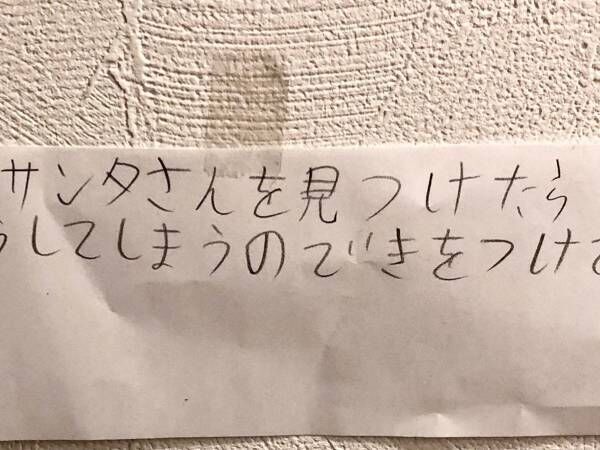 サンタさんを見つけたら
うしてしまうのできをつけて